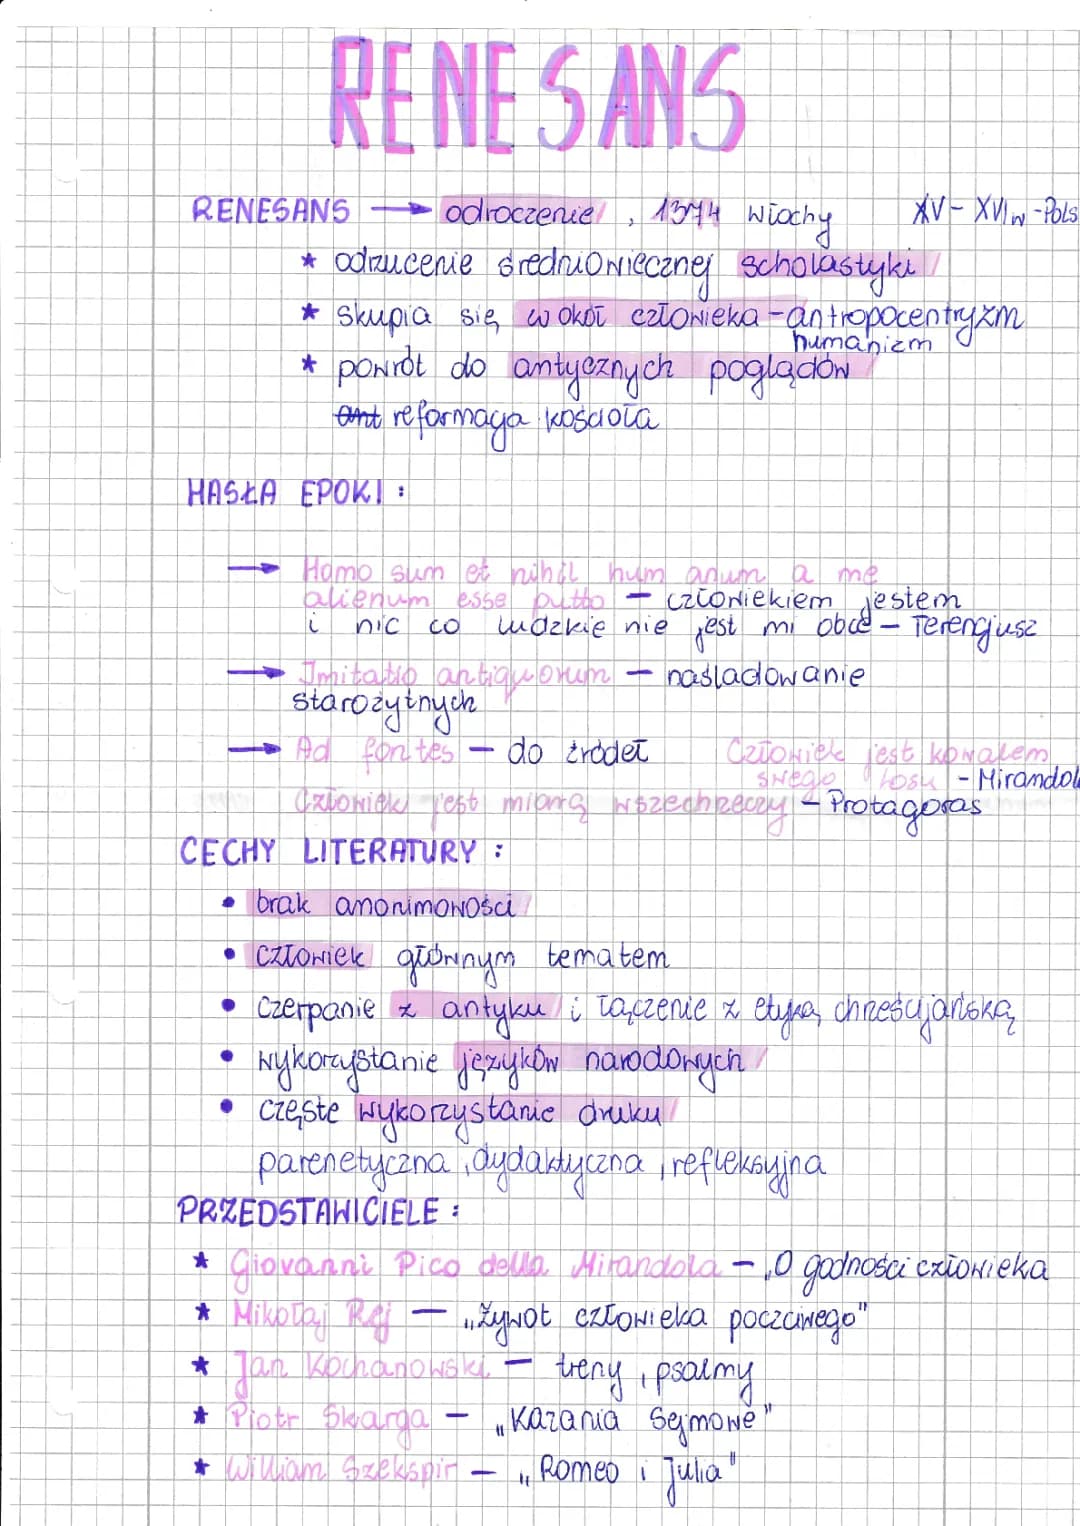 RENESANS
RENESANS → odroczenie, 1374 Włochy XV - XVI w - Pols
* odrzucenie średniowiecznej scholastyki
* skupia się wokół człowieka - antropocentryzm
humanizm
* powrót do antycznych poglądów
ant reformacja kościoła
HASŁA EPOKI :
→ Homo sum et nihil humanum a me
alienum esse putto - człowiekiem jestem
i nic co ludzkie nie jest mi obce - Terencjusz
→ Imitatio antiquorum - naśladowanie
starożytnych
→ Ad fontes - do źródeł
Człowiek jest kowalem
swego losu - Mirandol
Człowiek jest miarą wszechrzeczy - Protagoras
CECHY LITERATURY :
• brak anonimowości
• człowiek głównym tematem
• czerpanie z antyku i łączenie z etyką chrześcijańską
• wykorzystanie języków narodowych
• częste wykorzystanie druku
parenetyczna, dydaktyczna, refleksyjna
PRZEDSTAWICIELE :
* Giovanni Pico della Mirandola - „O godności człowieka
* Mikołaj Rej - „Żywot człowieka poczciwego"
* Jan Kochanowski - treny, psalmy
* Piotr Skarga - „Kazania Sejmowe"
* William Szekspir - „Romeo i Julia"